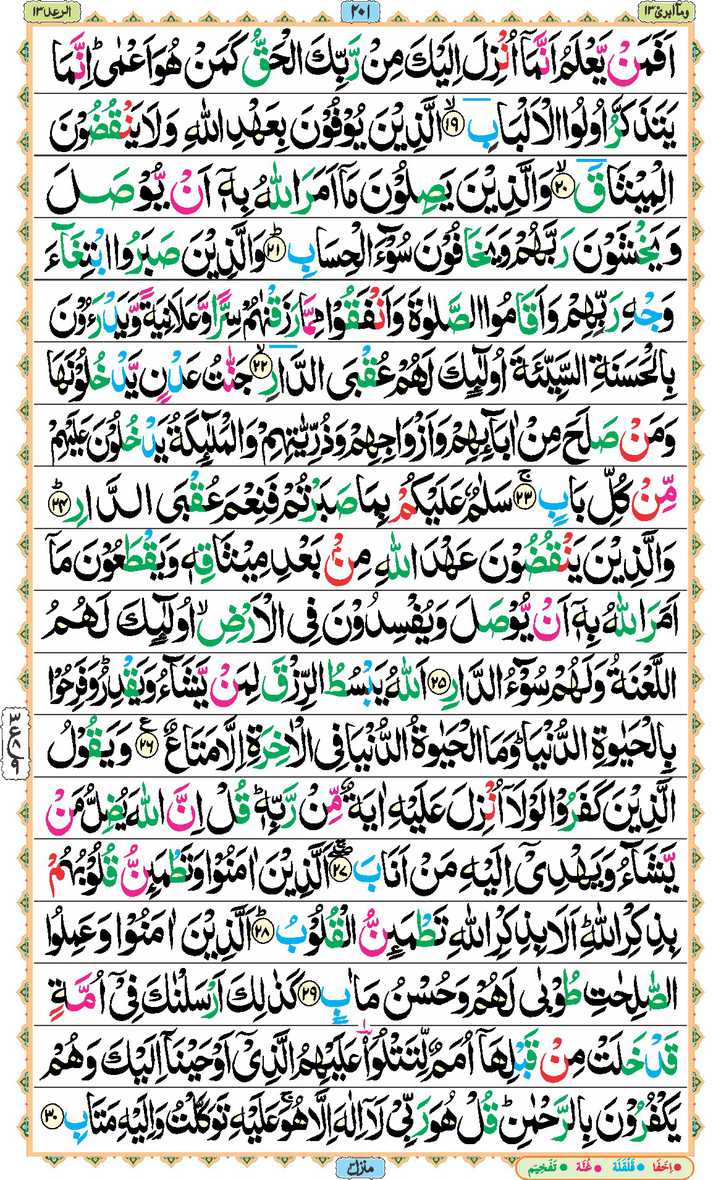 وما ابرئ ١٣
٢٠١
الرعد ١٣
اَفَمَنْ يَّعْلَمُ اَنَّمَاۤ اُنْزِلَ اِلَيْكَ مِنْ رَّبِّكَ الْحَقُّ كَمَنْ هُوَ اَعْمٰىؕ اِنَّمَا
يَتَذَكَّرُ اُولُوا الْاَلْبَابِۙ‏ ۱۹ الَّذِيْنَ يُوْفُوْنَ بِعَهْدِ اللّٰهِ وَلَا يَنْقُضُوْنَ
الْمِيْثَاقَۙ‏ ۲۰ وَالَّذِيْنَ يَصِلُوْنَ مَاۤ اَمَرَ اللّٰهُ بِهٖۤ اَنْ يُّوْصَلَ
وَيَخْشَوْنَ رَبَّهُمْ وَيَخَافُوْنَ سُوْٓءَ الْحِسَابِؕ‏ ۲۱ وَالَّذِيْنَ صَبَرُوا ابْتِغَآءَ
وَجْهِ رَبِّهِمْ وَاَقَامُوا الصَّلٰوةَ وَاَنْفَقُوْا مِمَّا رَزَقْنٰهُمْ سِرًّا وَّعَلَانِيَةً وَّيَدْرَءُوْنَ
بِالْحَسَنَةِ السَّيِّئَةَ اُولٰٓئِكَ لَهُمْ عُقْبَى الدَّارِۙ‏ ۲۲ جَنّٰتُ عَدْنٍ يَّدْخُلُوْنَهَا
وَمَنْ صَلَحَ مِنْ اٰبَآئِهِمْ وَاَزْوَاجِهِمْ وَذُرِّيّٰتِهِمْ وَالْمَلٰٓئِكَةُ يَدْخُلُوْنَ عَلَيْهِمْ
مِّنْ كُلِّ بَابٍۚ‏ ۲۳ سَلٰمٌ عَلَيْكُمْ بِمَا صَبَرْتُمْ فَنِعْمَ عُقْبَى الدَّارِؕ‏ ۲۴
وَالَّذِيْنَ يَنْقُضُوْنَ عَهْدَ اللّٰهِ مِنْۢ بَعْدِ مِيْثَاقِهٖ وَيَقْطَعُوْنَ مَاۤ
اَمَرَ اللّٰهُ بِهٖۤ اَنْ يُّوْصَلَ وَيُفْسِدُوْنَ فِى الْاَرْضِۙ اُولٰٓئِكَ لَهُمُ
اللَّعْنَةُ وَلَهُمْ سُوْٓءُ الدَّارِ‏ ۲۵ اَللّٰهُ يَبْسُطُ الرِّزْقَ لِمَنْ يَّشَآءُ وَيَقْدِرُؕ وَفَرِحُوْا
بِالْحَيٰوةِ الدُّنْيَاؕ وَمَا الْحَيٰوةُ الدُّنْيَا فِى الْاٰخِرَةِ اِلَّا مَتَاعٌ‏ ۲۶ وَيَقُوْلُ
الَّذِيْنَ كَفَرُوْا لَوْلَاۤ اُنْزِلَ عَلَيْهِ اٰيَةٌ مِّنْ رَّبِّهٖؕ قُلْ اِنَّ اللّٰهَ يُضِلُّ مَنْ
يَّشَآءُ وَيَهْدِىْۤ اِلَيْهِ مَنْ اَنَابَ ۲۷ اَلَّذِيْنَ اٰمَنُوْا وَتَطْمَئِنُّ قُلُوْبُهُمْ
بِذِكْرِ اللّٰهِؕ اَلَا بِذِكْرِ اللّٰهِ تَطْمَئِنُّ الْقُلُوْبُؕ‏ ۲۸ اَلَّذِيْنَ اٰمَنُوْا وَعَمِلُوا
الصّٰلِحٰتِ طُوْبٰى لَهُمْ وَحُسْنُ مَاٰبٍ‏ ۲۹ كَذٰلِكَ اَرْسَلْنٰكَ فِىْۤ اُمَّةٍ
قَدْ خَلَتْ مِنْ قَبْلِهَاۤ اُمَمٌ لِّتَتْلُوَا۟ عَلَيْهِمُ الَّذِىْۤ اَوْحَيْنَاۤ اِلَيْكَ وَهُمْ
يَكْفُرُوْنَ بِالرَّحْمٰنِؕ قُلْ هُوَ رَبِّىْ لَاۤ اِلٰهَ اِلَّا هُوَۚ عَلَيْهِ تَوَكَّلْتُ وَاِلَيْهِ مَتَابِ‏ ۳۰
منزل ٣
اِخْفَا قَلْقَلَة غُنَّة تَفْخِيْم